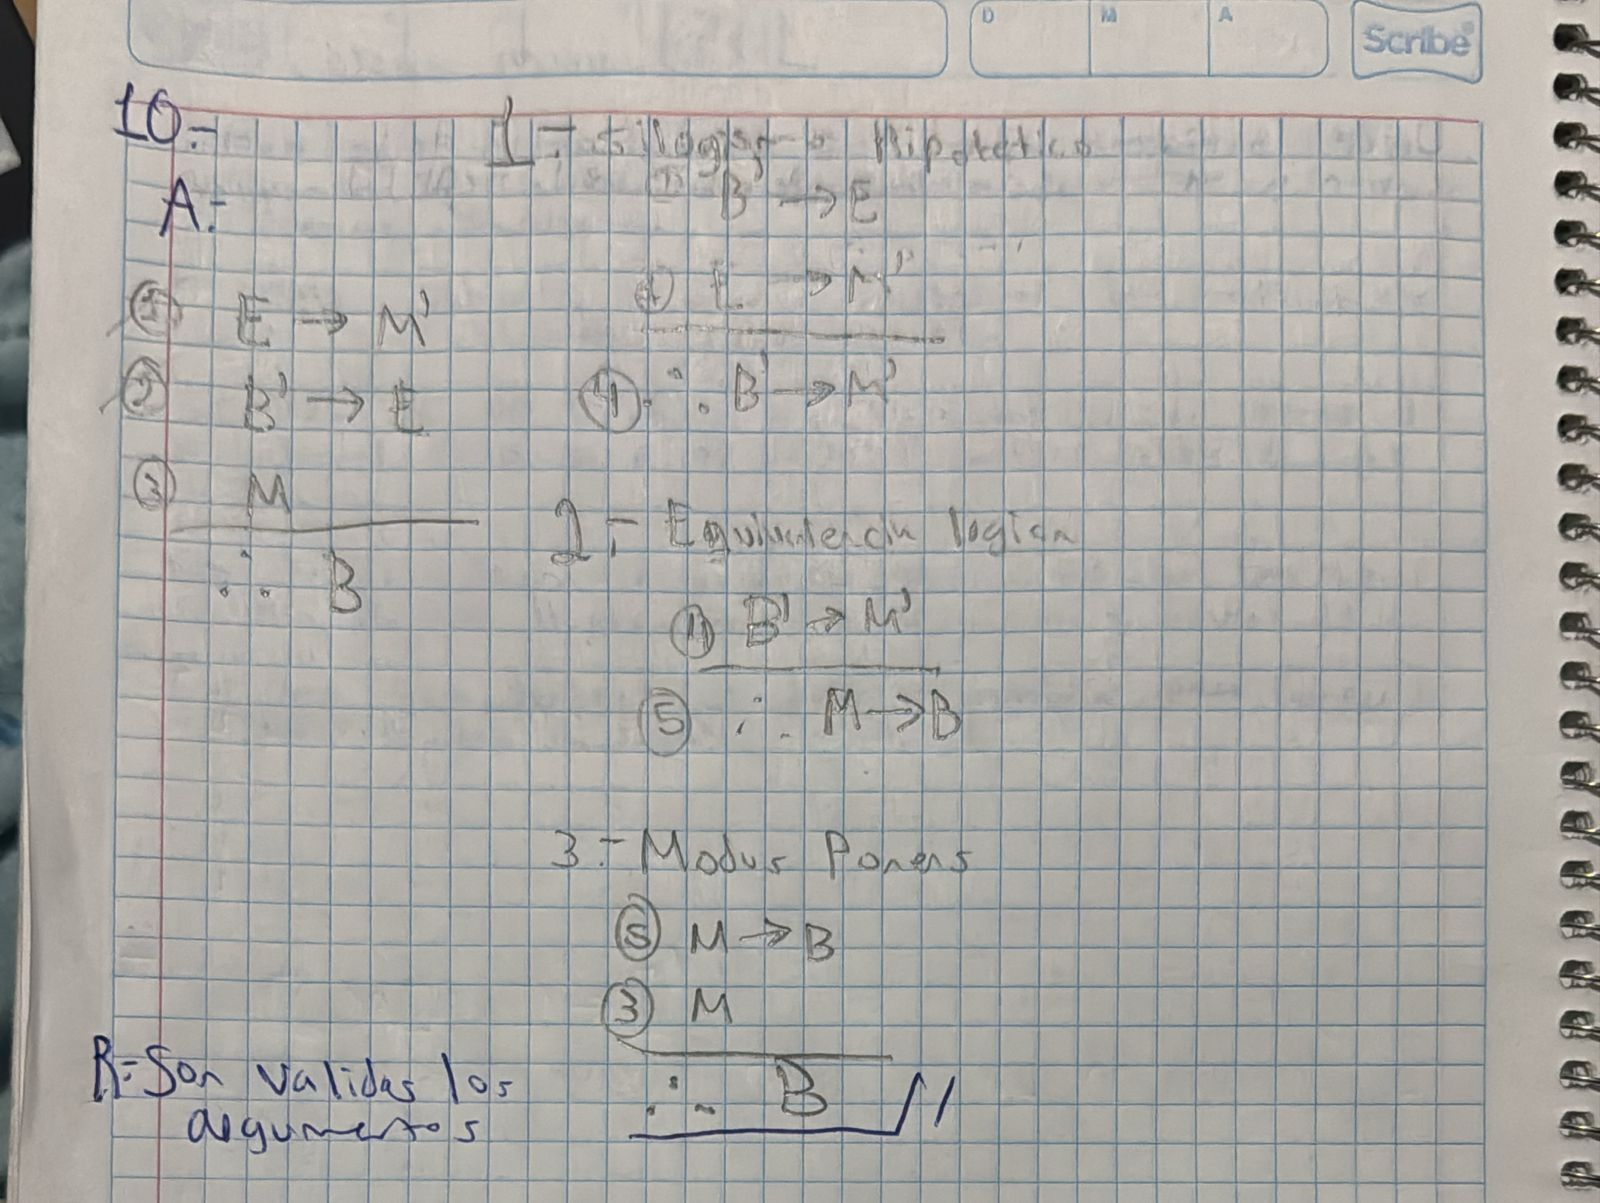 D M A
Scribe
10.-
A.-
① E → M'
② B' → E
③ M
∴ B
1.- Silogismo Hipotetico
② B' → E
① E → M'
④ ∴ B' → M'
2.- Equivalencia logica
④ B' → M'
⑤ ∴ M → B
3.- Modus Ponens
⑤ M → B
③ M
∴ B //
R= Son validos los
argumentos